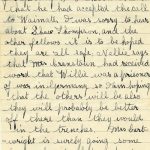 that he had accepted the call
to Wainate. I was sorry to hear
about Steve Thompson, and the
other fellows it is to be hoped
they are all safe. Nellie says
that Mrs Brenstein had received
word that Willie was a prisoner
of war in Germany so I am hoping
that the others will be also
they will probably be better
off there than they would
in the trenches. Mrs bert
wright is surely going some